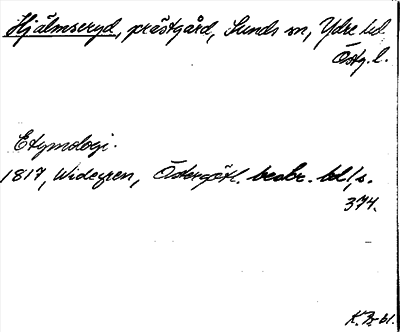 Hjälmseryd, prästgård, Sunds sn, Ydre hd.
Östg. l.
Etymologi.
1817, Widegren, Östergötl. beskr. bd 1, s.
374.
K. Br-bl.